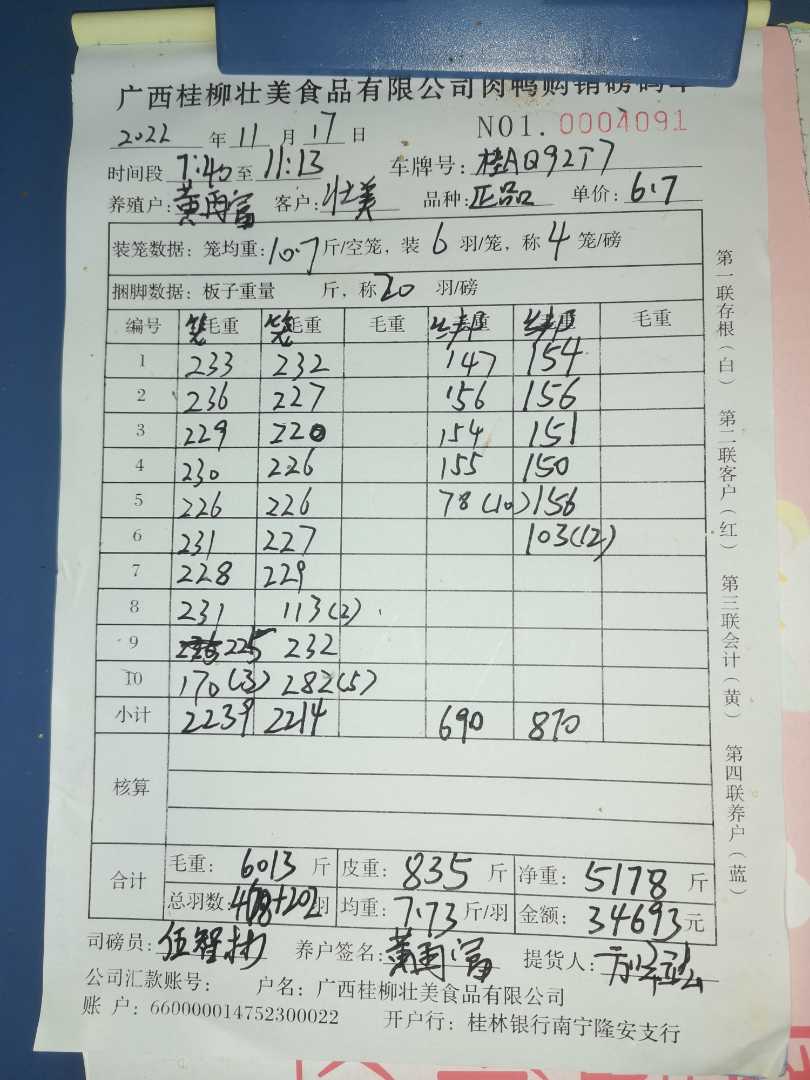 广西桂柳壮美食品有限公司肉鸭购销磅码单
2022 年 11 月 17 日 NO1. 0004091
时间段 7:40 至 11:13 车牌号: 桂AQ92T7
养殖户: 黄雨富 客户: 壮美 品种: 正品 单价: 6.7
装笼数据: 笼均重: 10.7 斤/空笼, 装 6 羽/笼, 称 4 笼/磅
捆脚数据: 板子重量 斤, 称 20 羽/磅
编号 笼毛重 笼毛重 毛重 绑毛重 绑毛重 毛重
1 233 232 147 154
2 236 227 156 156
3 229 220 154 151
4 230 226 155 150
5 226 226 78(10) 156
6 231 227 103(12)
7 228 229
8 231 113(2)
9 225 232
10 170(3) 282(5)
小计 2239 2214 690 870
核算
合计 毛重: 6013 斤 皮重: 835 斤 净重: 5178 斤
总羽数: 468+202 羽 均重: 7.73 斤/羽 金额: 34693 元
司磅员: 伍智彬 养户签名: 黄雨富 提货人:
公司汇款账号: 户名: 广西桂柳壮美食品有限公司
账 户: 660000014752300022 开户行: 桂林银行南宁隆安支行
第一联存根(白) 第二联客户(红) 第三联会计(黄) 第四联养户(蓝)